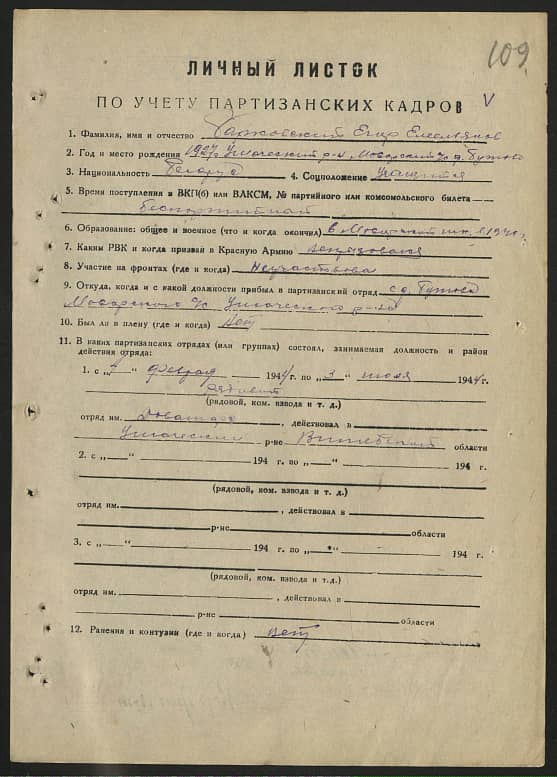 109.
ЛИЧНЫЙ ЛИСТОК
ПО УЧЕТУ ПАРТИЗАНСКИХ КАДРОВ V
1. Фамилия, имя и отчество Егор
2. Год и место рождения 1927г Ушачский р-н,
3. Национальность Белорус 4. Соцположение учащийся
5. Время поступления в ВКП(б) или ВЛКСМ, № партийного или комсомольского билета —
беспартийный
6. Образование: общее и военное (что и когда окончил) в 1940г
7. Каким РВК и когда призван в Красную Армию
8. Участие на фронтах (где и когда)
9. Откуда, когда и с какой должности прибыл в партизанский отряд с д.
р-на
10. Был ли в плену (где и когда) нет
11. В каких партизанских отрядах (или группах) состоял, занимаемая должность и район
действия отряда:
1. с „ “ феврал 1944 г. по „3“ июля 1944 г.
рядовой
(рядовой, ком. взвода и т. д.)
отряд им. , действовал в
Ушачский р-не Витебской области
2. с „ “ 194 г. по „ “ 194 г.
(рядовой, ком. взвода и т. д.)
отряд им. , действовал в
р-не области
3. с „ “ 194 г. по „ “ 194 г.
(рядовой, ком. взвода и т.д.)
отряд им. , действовал в
р-не области
12. Ранения и контузии (где и когда) нет